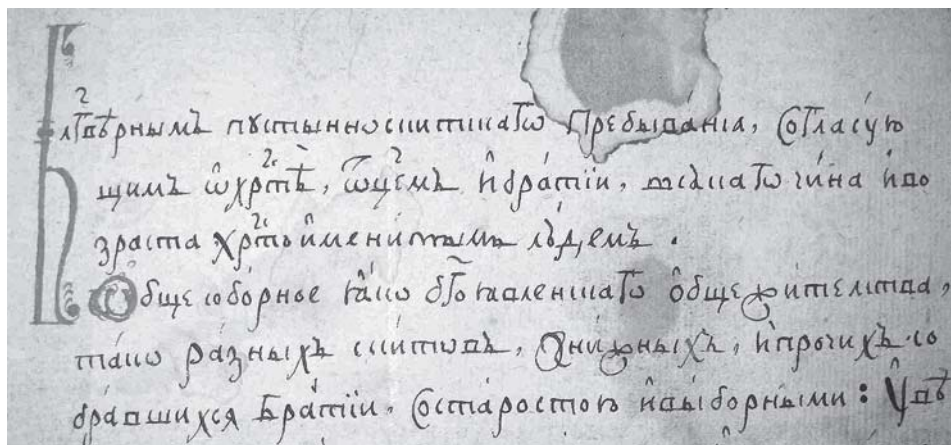 Благовѣрнымъ пꙋстынноскитскаго Пребыванїя, Согласую
щимъ ѡ҆хрⷭ҇тѣ, ѿцемъ и҆бра́тїи, всѧкаго чи́на и҆во
зраста хрⷭ҇тоимени́тымъ лю́демъ .
Ѻбщесоборное ꙗ҆́ко бг҃оꙗвленскаго о҆бщежи́телства,
та́ко ра́зныхъ ски́товъ, Ѻ҆ни́жныхъ, и҆про́чихъ со
бра́вшихся Бра́тїи. Состаростою и҆вы́борными : Ꙋвѣ